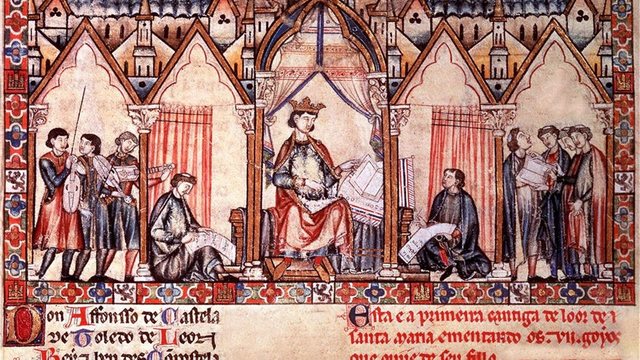 Don Affonsso de Castela
de Toledo de Leon
Rey e ben des Conpostela
Esta e a primeira cantiga de loor de
santa maria ementando os .vii. goyos
que ouue de seu fillo